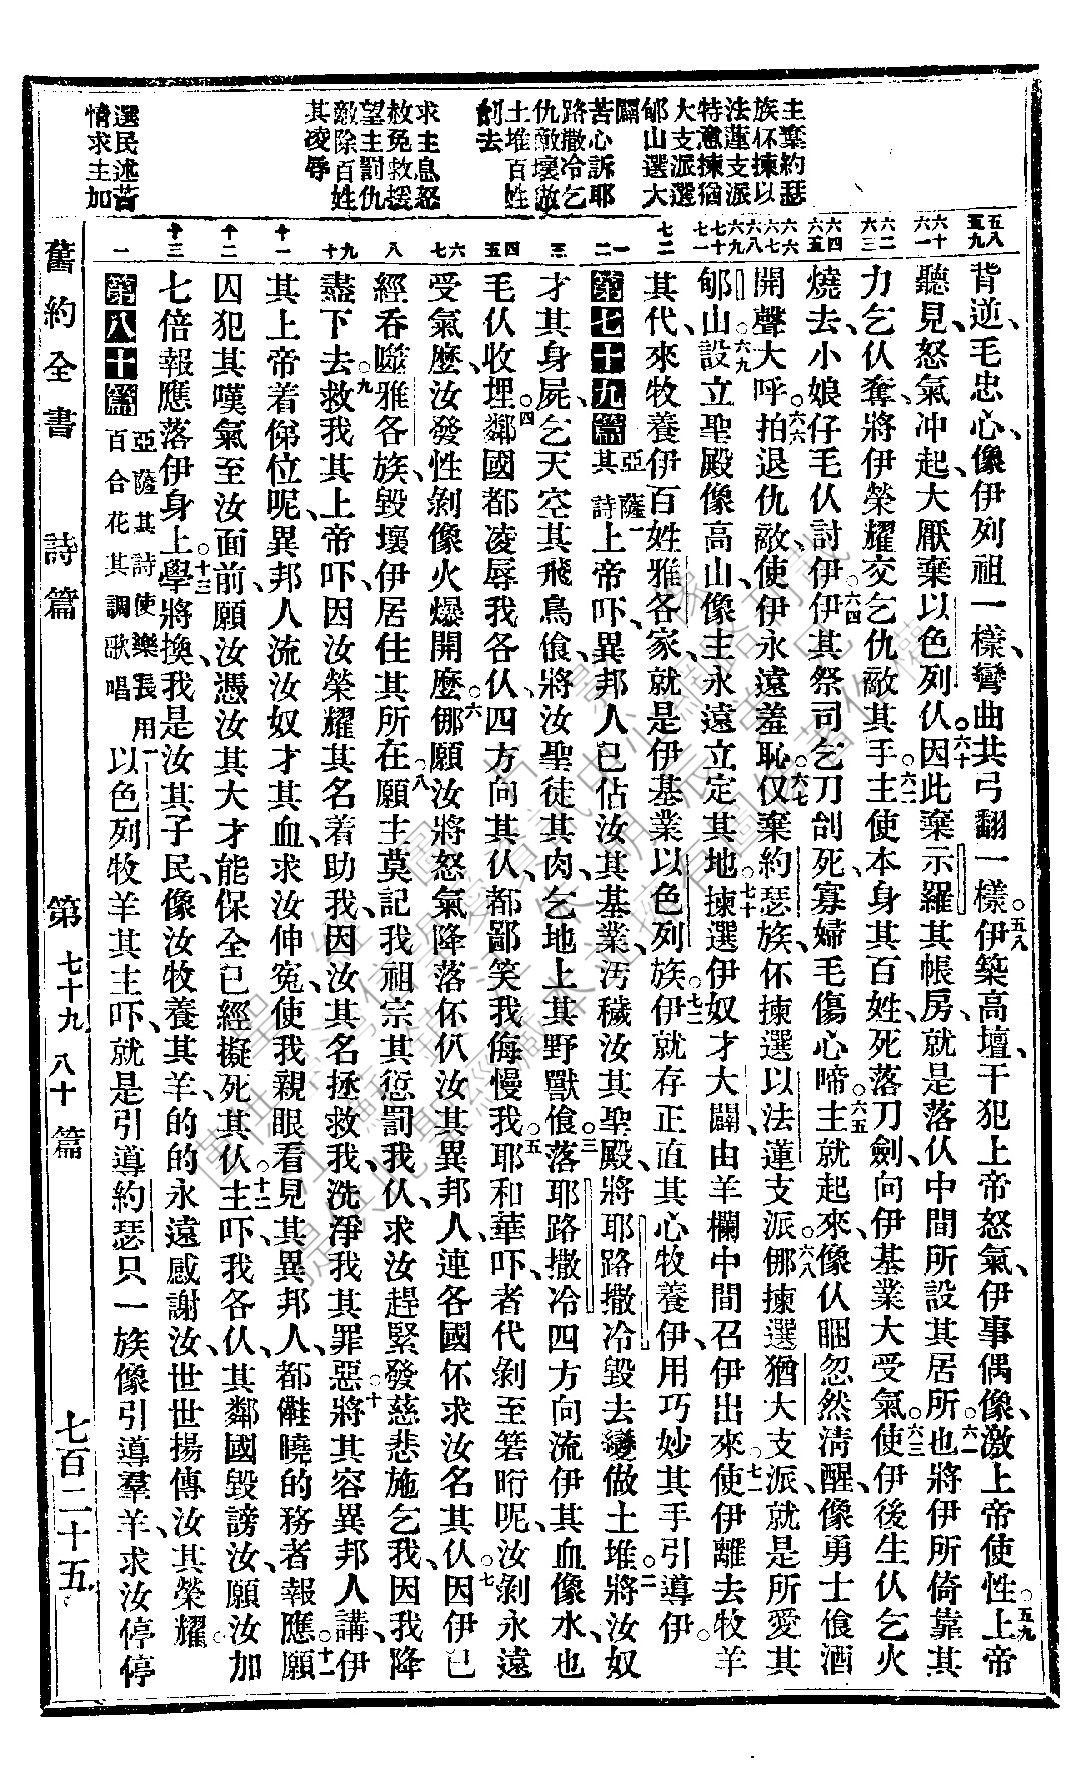 主棄約瑟
族伓揀以
法蓮支派
特意揀猶
大支派選
郇山選大
闢
苦心訴耶
路撒冷乞
仇敵壞敵
土堆百姓
刣去
求主息怒
赦免救援
望主罰仇
敵除百姓
其凌辱
選民述苦
情求主加
五八 五九
六十 六一
六二 六三
六四 六五
六六 六七
六八 六九
七十 七一
七二
一 二
三
四 五
六 七
八
九 十
十一
十二
十三
一
背逆、毛忠心、像伊列祖一樣、彎曲共弓翻一樣。五八伊築高壇、干犯上帝怒氣、伊事偶像、激上帝使性。五九上帝
聽見、怒氣冲起、大厭棄以色列仈。六十因此棄示羅其帳房、就是落仈中間所設其居所。六一也將伊所倚靠其
力、乞仈奪、將伊榮耀交乞仇敵其手。六二主使本身其百姓、死落刀劍、向伊基業大受氣。六三使伊後生仈乞火
燒去、小娘仔毛仈討伊。六四伊其祭司乞刀刣死、寡婦毛傷心啼。六五主就起來、像仈睏忽然淸醒、像勇士飡酒
開聲大呼。六六拍退仇敵、使伊永遠羞恥。六七仅棄約瑟族、伓揀選以法蓮支派。六八㑚揀選猶大支派、就是所愛其
郇山。六九設立聖殿像高山、像主永遠立定其地。七十揀選伊奴才大闢、由羊欄中間召伊出來。七一使伊離去牧羊
其代、來牧養伊百姓雅各家、就是伊基業以色列族。七二伊就存正直其心牧養伊、用巧妙其手引導伊。
第七十九篇 亞薩其詩 一上帝吓、異邦人已佔汝其基業、汚穢汝其聖殿、將耶路撒冷毀去、變做土堆。二將汝奴
才其身屍、乞天空其飛鳥飡、將汝聖徒其肉、乞地上其野獸飡。三落耶路撒冷四方向流伊其血、像水、也
毛仈收埋。四鄰國都凌辱我各仈、四方向其仈、都鄙笑我侮慢我。五耶和華吓、者代剝至箬時呢、汝剝永遠
受氣麼、汝發性剝像火爆開麼。六㑚願汝將怒氣降落伓仈汝其異邦人、連各國伓求汝名其仈。七因伊已
經吞噬雅各族、毀壞伊居住其所在。八願主莫記我祖宗其愆罰我仈、求汝趕緊發慈悲施乞我、因我降
盡下去。九救我其上帝吓、因汝榮耀其名着助我、因汝其名拯救我、洗淨我其罪惡。十將其容異邦人講、伊
其上帝着俤位呢、異邦人流汝奴才其血、求汝伸寃、使我親眼看見其異邦人、都儺曉的務者報應。十一願
囚犯其嘆氣至汝面前、願汝憑汝其大才能、保全已經擬死其仈。十二主吓、我各仈其鄰國毀謗汝、願汝加
七倍報應落伊身上。十三學將換、我是汝其子民、像汝牧養其羊、的的永遠感謝汝、世世揚傳汝其榮耀。
第八十篇 亞薩其詩使樂長用百合花其調歌唱 一以色列牧羊其主吓、就是引導約瑟只一族、像引導羣羊、求汝停停
舊約全書 詩篇 第七十九 八十篇 七百二十五